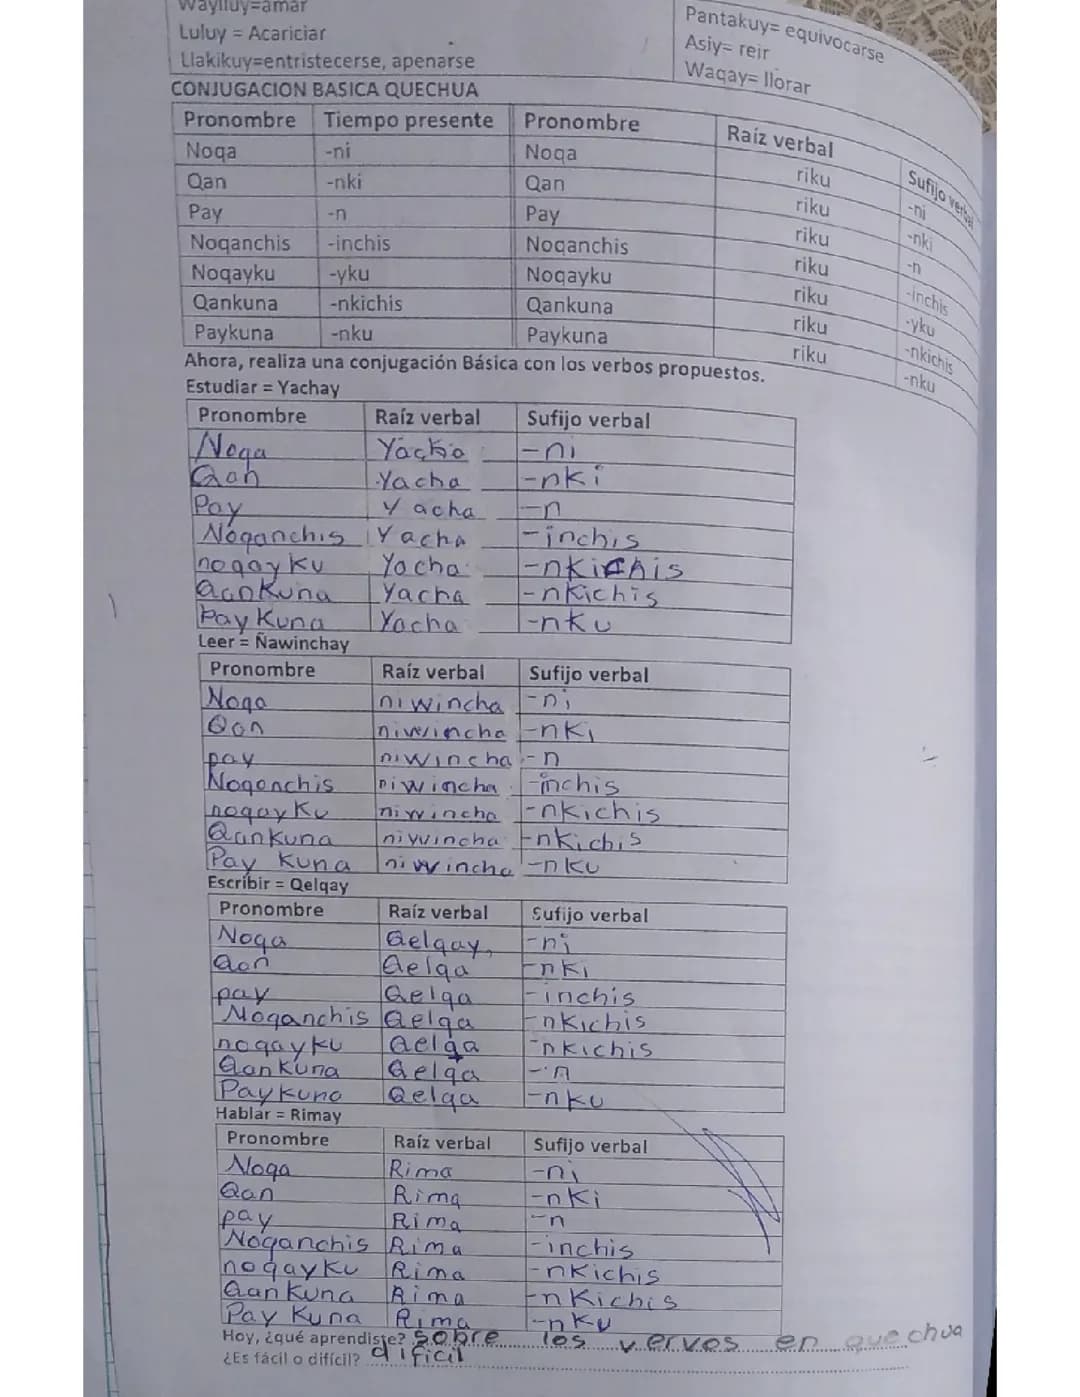 Waylluy=amar
Luluy = Acariciar
Llakikuy=entristecerse, apenarse
Pantakuy= equivocarse
Asiy= reir
Waqay= llorar
CONJUGACION BASICA QUECHUA
Pronombre Tiempo presente Pronombre Raíz verbal Sufijo verbal
Noqa -ni Noqa riku -ni
Qan -nki Qan riku -nki
Pay -n Pay riku -n
Noqanchis -inchis Noqanchis riku -inchis
Noqayku -yku Noqayku riku -yku
Qankuna -nkichis Qankuna riku -nkichis
Paykuna -nku Paykuna riku -nku
Ahora, realiza una conjugación Básica con los verbos propuestos.
Estudiar = Yachay
Pronombre Raíz verbal Sufijo verbal
Noqa Yacha -ni
Qan Yacha -nki
Pay Yacha -n
Noqanchis Yacha -inchis
noqayku Yacha -nkichis
Qankuna Yacha -nkichis
Pay Kuna Yacha -nku
Leer = Ñawinchay
Pronombre Raíz verbal Sufijo verbal
Noqa niwincha -ni
Qan niwincha -nki
pay niwincha -n
Noqanchis niwincha -inchis
noqayku niwincha -nkichis
Qankuna niwincha -nkichis
Pay Kuna niwincha -nku
Escribir = Qelqay
Pronombre Raíz verbal Sufijo verbal
Noqa Qelqay -ni
Qan Qelqa -nki
pay Qelqa -inchis
Noqanchis Qelqa -nkichis
noqayku Qelqa -nkichis
Qankuna Qelqa -n
Paykuna Qelqa -nku
Hablar = Rimay
Pronombre Raíz verbal Sufijo verbal
Noqa Rima -ni
Qan Rima -nki
pay Rima -n
Noqanchis Rima -inchis
noqayku Rima -nkichis
Qankuna Rima -nkichis
Pay Kuna Rima -nku
Hoy, ¿qué aprendiste? sobre los vervos en quechua
¿Es fácil o difícil? dificil